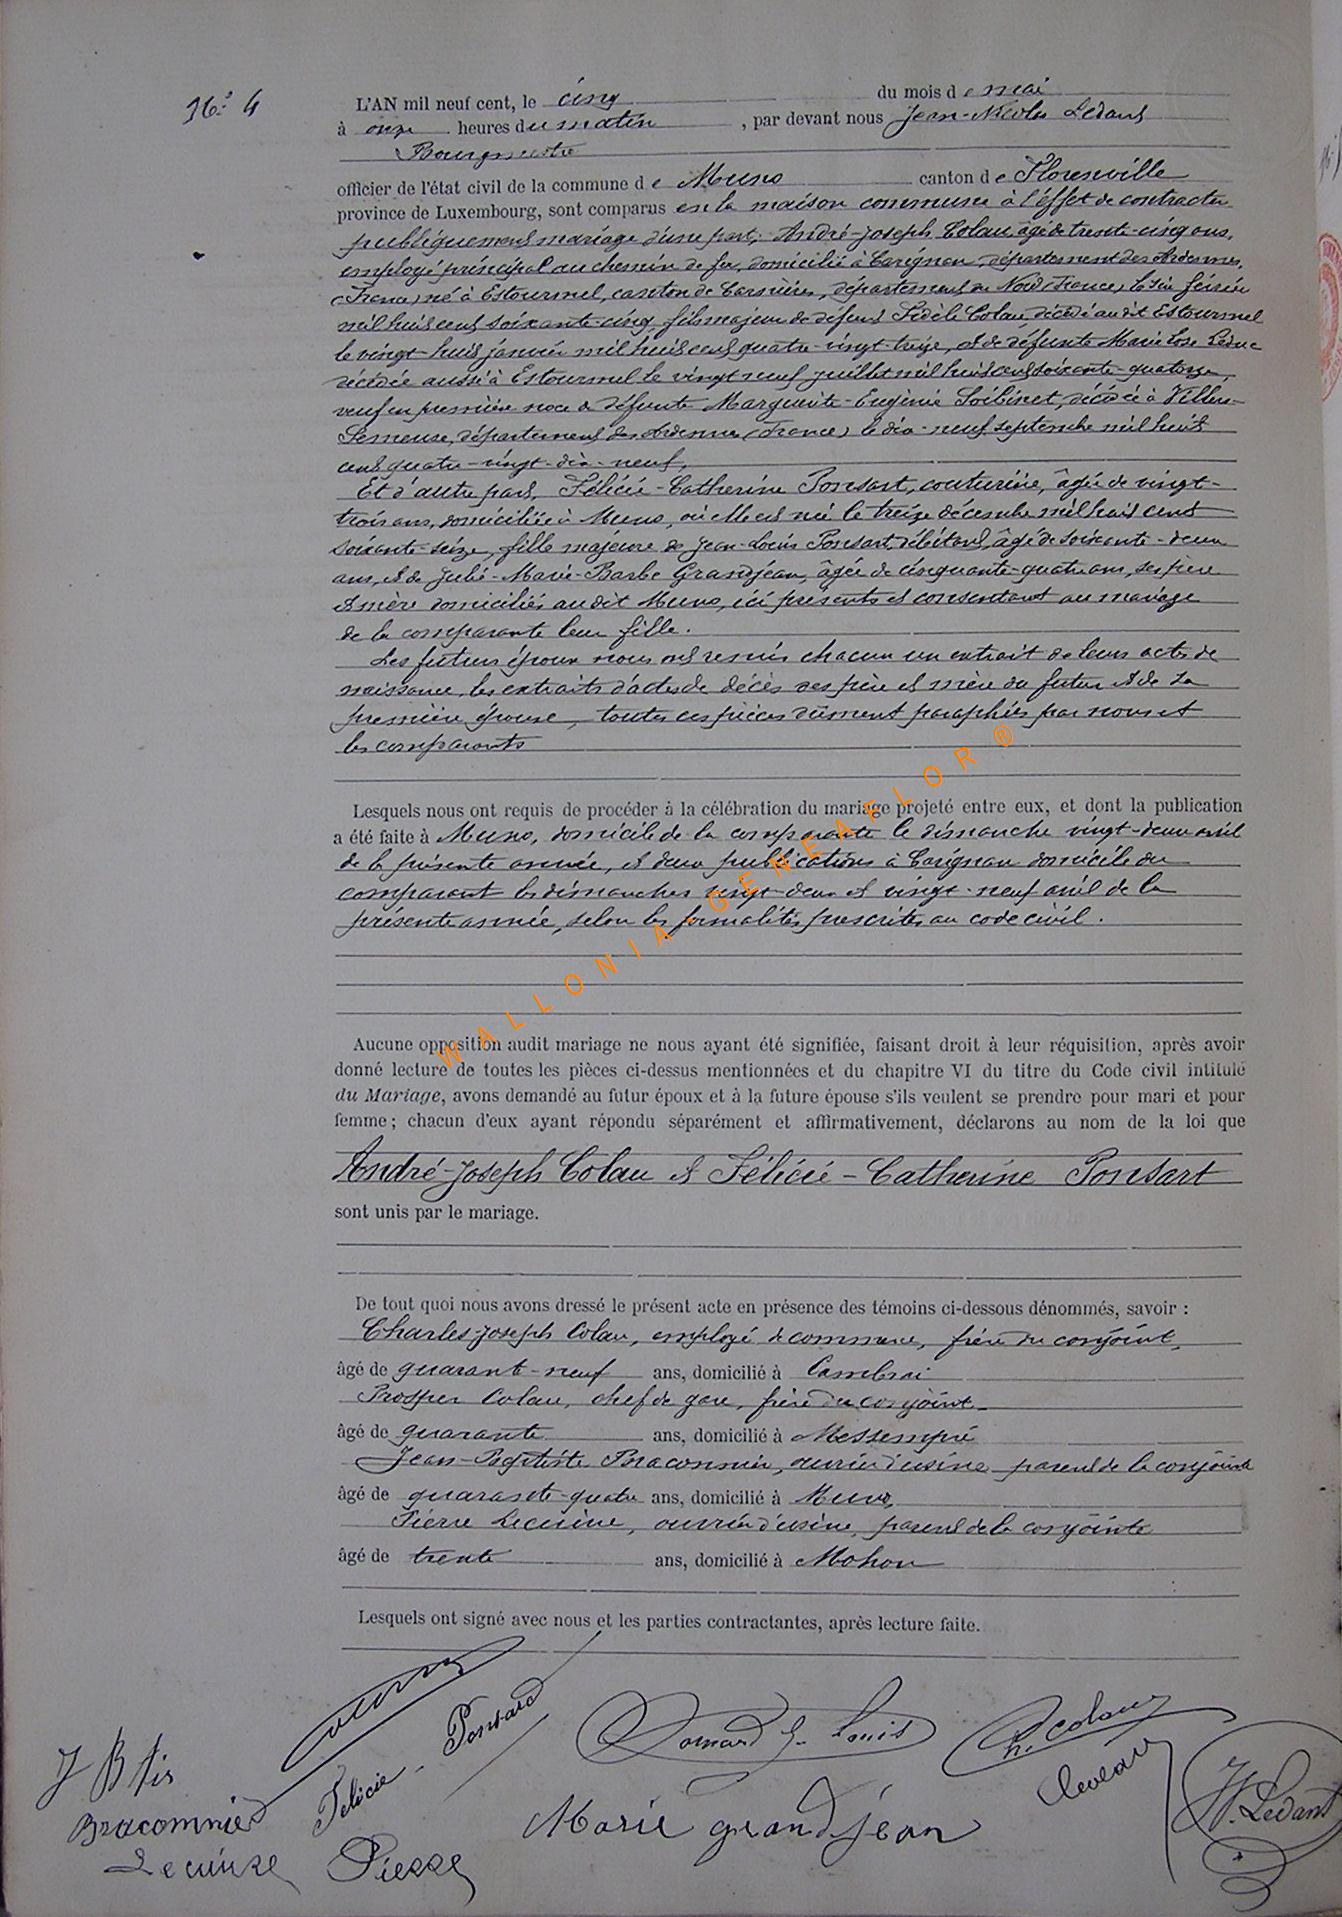 N° 4
L'AN mil neuf cent, le cinq du mois d e mai
à onze heures du matin, par devant nous Jean-Nicolas Ledant
Bourgmestre
officier de l'état civil de la commune d e Muno canton d e Florenville
province de Luxembourg, sont comparus en la maison commune à l'effet de contracter
publiquement mariage d'une part, André-Joseph Colau, âgé de trente-cinq ans,
employé principal au chemin de fer, domicilié à Carignan, département des Ardennes,
(France) né à Estourmel, canton de Carnières, département du Nord (France) le six février
mil huit cent soixante-cinq, fils majeur de défunt Fidèle Colau, décédé audit Estourmel
le vingt-huit janvier mil huit cent quatre-vingt-treize, et de défunte Marie Rose Leduc
décédée aussi à Estourmel le vingt neuf juillet mil huit cent soixante-quatorze,
veuf en première noce de défunte Marguerite-Eugénie Soibinet, décédée à Villers-
Semeuse, département des Ardennes (France) le dix-neuf septembre mil huit
cent quatre-vingt-dix-neuf,
Et d'autre part, Félicie-Catherine Ponsart, couturière, âgée de vingt-
trois ans, domiciliée à Muno, où elle est née le treize décembre mil huit cent
soixante-seize, fille majeure de Jean-Louis Ponsart, débitant, âgé de soixante-deux
ans, et de Julie-Marie-Barbe Grandjean, âgée de cinquante-quatre ans, ses père
et mère domiciliés audit Muno, ici présents et consentant au mariage
de la comparante leur fille.
Les futurs époux nous ont remis chacun un extrait de leurs actes de
naissance, les extraits d'actes de décès des père et mère du futur et de sa
première épouse, toutes ces pièces dûment paraphées par nous et
les comparants
Lesquels nous ont requis de procéder à la célébration du mariage projeté entre eux, et dont la publication
a été faite à Muno, domicile de la comparante le dimanche vingt-deux avril
de la présente année, et deux publications à Carignan domicile du
comparant les dimanches vingt-deux et vingt-neuf avril de la
présente année, selon les formalités prescrites au code civil.
WALLONIA - GENEAFLOR ®
Aucune opposition audit mariage ne nous ayant été signifiée, faisant droit à leur réquisition, après avoir
donné lecture de toutes les pièces ci-dessus mentionnées et du chapitre VI du titre du Code civil intitulé
du Mariage, avons demandé au futur époux et à la future épouse s'ils veulent se prendre pour mari et pour
femme ; chacun d'eux ayant répondu séparément et affirmativement, déclarons au nom de la loi que
André-Joseph Colau et Félicie-Catherine Ponsart
sont unis par le mariage.
De tout quoi nous avons dressé le présent acte en présence des témoins ci-dessous dénommés, savoir :
Charles-Joseph Colau, employé de commerce, frère du conjoint,
âgé de quarante-neuf ans, domicilié à Cambrai
Prosper Colau, chef de gare, frère du conjoint
âgé de quarante ans, domicilié à Messempré
Jean-Baptiste Braconnier, ouvrier d'usine parent de la conjointe
âgé de quarante-quatre ans, domicilié à Muno,
Pierre Lecuivre, ouvrier d'usine, parent de la conjointe
âgé de trente ans, domicilié à Mohon
Lesquels ont signé avec nous et les parties contractantes, après lecture faite.
Félicie Ponsard
J. Louis
Ch. Colau
Colau
J B tis
Braconnier
Marie grandjean
J N. Ledant
Lecuivre Pierre